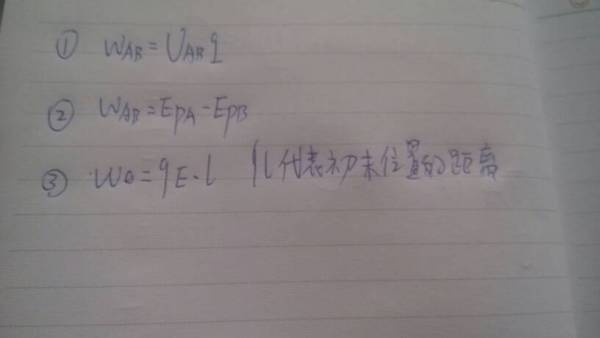 ① WAB = UAB q
② WAB = EpA - EpB
③ W = qE·l l代表初末位置的距离